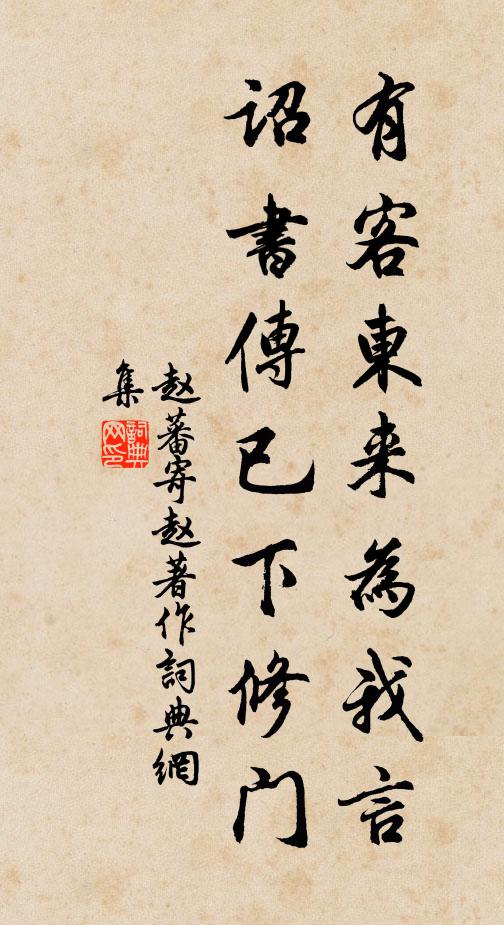 有客東来為我言
詔書傳已下修門
赵蕃寄赵著作詞典網
集
詞典
网印